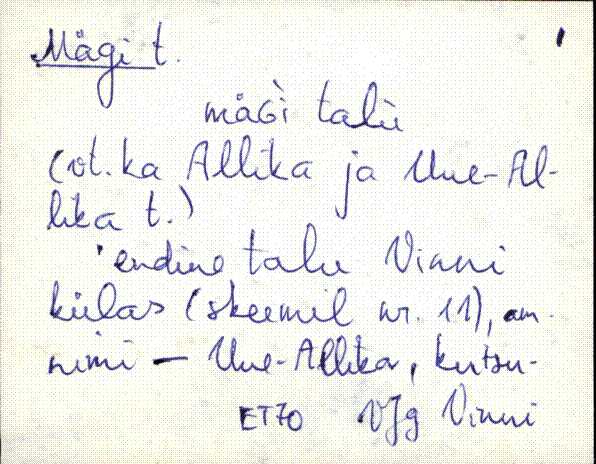 Mägi t.
mäɢì talù
(vt. ka Allika ja Uue-Al-
lika t.)
endine talu Vinni
külas (skeemil nr. 11), am.
nimi - Uue-Allika, kutsu-
ET70 VJg Vinni